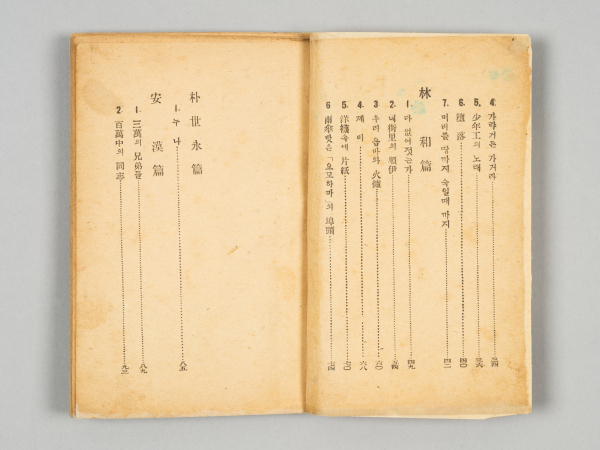 4. 가랴거든 가거라 三四
5. 少年工의 노래 三六
6. 墮落 四〇
7. 머리를 땅까지 숙일때 까지 四二
林和篇
1. 다 없어젓는가 四九
2. 네街里의 順伊 五四
3 우리 옵바와 火爐 六〇
4. 제 비 六八
5. 洋襪속에 片紙 七〇
6 雨傘밧은「요꼬하마」의 埠頭 七四
朴世永篇
1. 누 나 八五
安漠篇
1. 三萬의 兄弟들 八九
2. 百萬中의 同志 九三